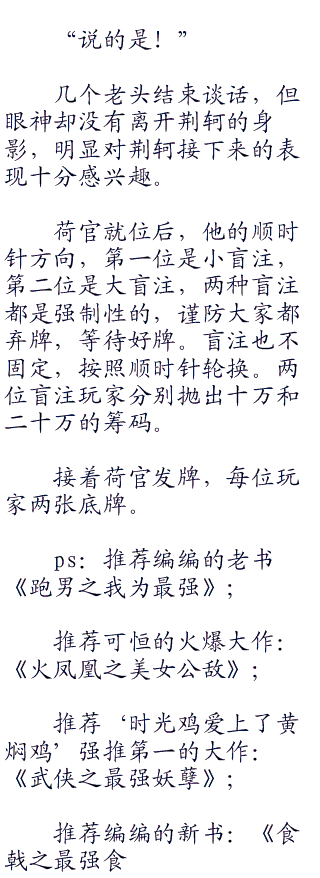 “说的是！”
几个老头结束谈话，但
眼神却没有离开荆轲的身
影，明显对荆轲接下来的表
现十分感兴趣。
荷官就位后，他的顺时
针方向，第一位是小盲注，
第二位是大盲注，两种盲注
都是强制性的，谨防大家都
弃牌，等待好牌。盲注也不
固定，按照顺时针轮换。两
位盲注玩家分别抛出十万和
二十万的筹码。
接着荷官发牌，每位玩
家两张底牌。
ps：推荐编编的老书
《跑男之我为最强》；
推荐可恒的火爆大作：
《火凤凰之美女公敌》；
推荐‘时光鸡爱上了黄
焖鸡’强推第一的大作：
《武侠之最强妖孽》；
推荐编编的新书：《食
戟之最强食